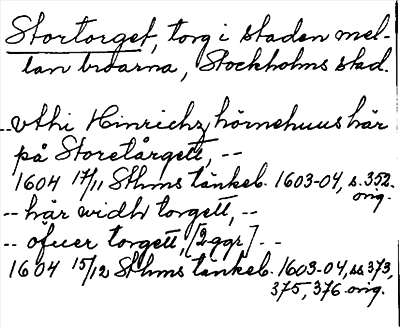 Stortorget, torg i staden mel-
lan broarna, Stockholms stad.
-- vthi Hinrichz hörnehuus här
på Storetårgett, --
1604 17/11 Sthms tänkeb. 1603-04, s. 352.
orig.
-- här widh torgett, --
-- öfuer torgett, [2 ggr] --
1604 15/12 Sthms tänkeb. 1603-04, ss 373,
375, 376 orig.